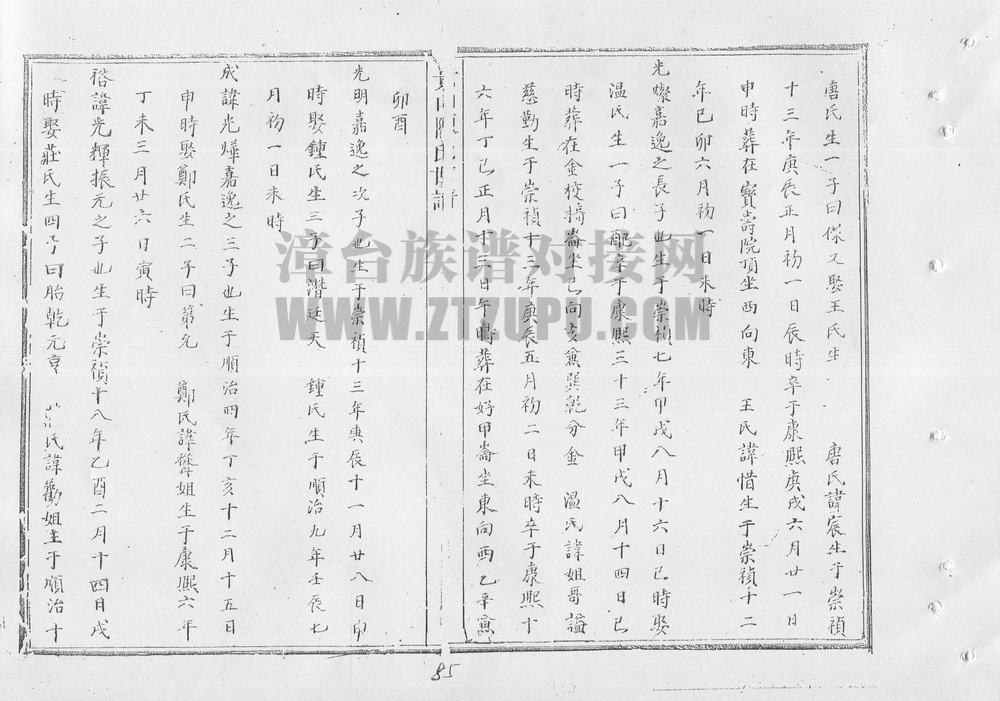 唐氏生一子曰保又娶王氏生　唐氏諱宸生于崇禎
十三年庚辰正月初一日辰時卒于康熙庚戌六月廿一日
申時葬在寶壽院頂坐西向東　王氏諱惜生于崇禎十二
年己卯六月初一日未時
光燦嘉逸之長子也生于崇禎七年甲戌八月十六日巳時娶
温氏生一子曰配卒于康熙三十三年甲戌八月十四日巳
時葬在金校椅崙坐巳向亥兼巽乾分金　温氏諱姐哥謚
慈勤生于崇禎十三年庚辰五月初二日未時卒于康熙十
六年丁巳正月十三日午時葬在好甲崙坐東向西乙辛兼
卯酉
光明嘉逸之次子也生于崇禎十三年庚辰十一月廿八日卯
時娶鍾氏生三子曰潛廷天　鍾氏生于順治九年壬辰七
月初一日未時
成諱光燁嘉逸之三子也生于順治四年丁亥十二月十五日
申時娶鄭氏生二子曰第允　鄭氏諱姐生于康熙六年
丁未三月廿六日寅時
諱光輝振元之子也生于崇禎十八年乙酉二月十四日戌
時娶莊氏生四子曰胎乾元亨　莊氏諱勸姐生于順治十
漳台族谱对接网
WWW.ZTZUPU.COM
85